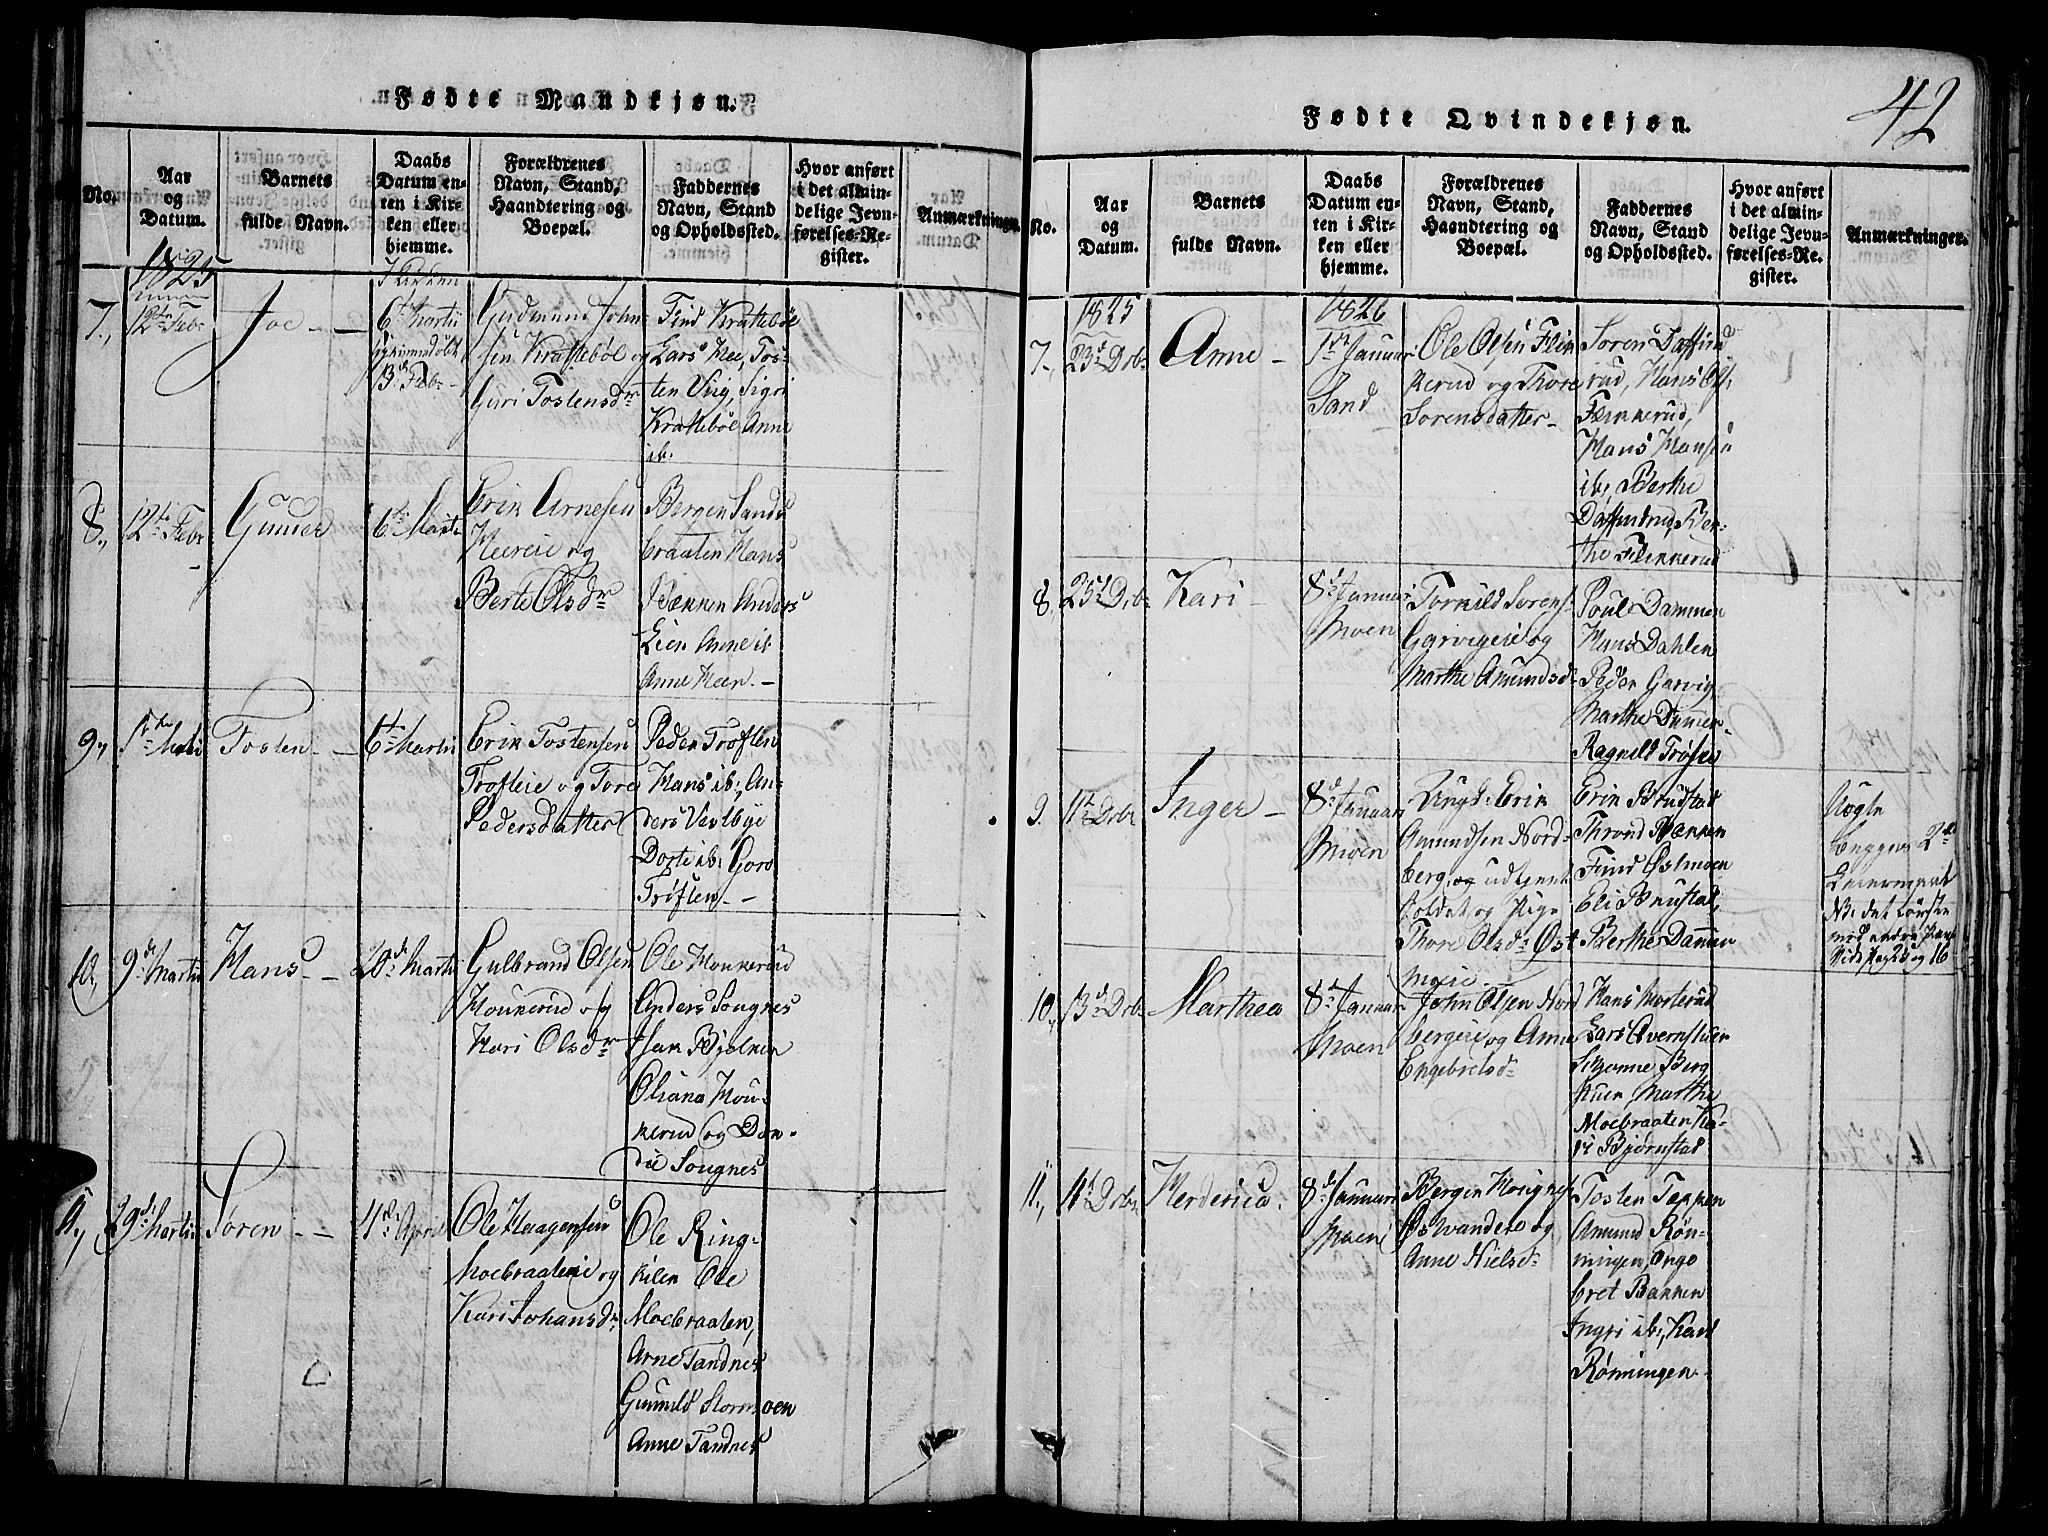 Fødte Mandkjøn.
No.
Aar
og
Datum.
Barnets
fulde Navn.
Daabs
Datum en-
ten i Kir-
ken eller
hjemme.
Forældrenes
Navn, Stand,
Haandtering og
Boepæl.
Faddernes
Navn, Stand
og Opholdssted.
Hvor anført
i det almin-
delige Jevn-
førelses-Re-
gister.
Anmærkninger.
1825
7.,
12te Febr
Joe -
Kirken
6te Martii
13de Febr -
Gudmund John
sen Krattebøl og
Guri Tostensdr
Find Krattebøl
Lars Kee, Tos-
ten Viig, Sigri
Krattebøl Anne
ib.
8.,
12te Febr
Gunder
6te Marti
Erik Arnesen
Keereie og
Berte Olsdr
Bergen Sands
braaten Hans
Bækken Anders
Lien Anne ib
Anne Keer. -
9.,
1ste Marti
Tosten -
6te Martii
Erik Tostensen
Trofteie og Tore
Pedersdatter
Peder Troften
Hans ib., An-
ders Veslbye
Dorte ib: Goro
Trøften -
10.,
9de Martii
Hans -
20de Martii
Gulbrand Olsen
Houkerud og
Kari Olsdr
Ole Houkerud
Anders Sougnes
Isak Bjelker
Oliana Hou-
kerud og Dor-
te Sougnes
11.,
29de Martii
Søren -
4de April
Ole Haagensen
Moebraateie og
Kari Johansdr
Ole Ring-
kilen Ole
Moebraaten,
Arne Tandnes
Gunnild Stormoen
Anne Tandnes
Fødte Qvindekjøn.
42
No.
Aar
og
Datum.
Barnets
fulde Navn.
Daabs
Datum en-
ten i Kir-
ken eller
hjemme.
Forældrenes
Navn, Stand,
Haandtering og
Boepæl.
Faddernes
Navn, Stand
og Opholdssted.
Hvor anført
i det almin-
delige Jevn-
førelses-Re-
gister.
Anmærkninger.
1825
7.,
23de Dcbr
Anne -
1826
1ste Januar
Sand
Ole Olsen Flin
kerud og Thore
Sorensdatter -
Soren Daffind
rud, Hans Ols.
Flinkerud,
Hans Hansen
ib., Berthe
Daffindrud, Ber-
the Flinkerud
8.
25de Dcbr
Kari -
8de Januar
Moen
Torkild Sorens.
Garvigeie og
Marthe Amundsd.
Poul Dammen
Hans Dahlen
Peder Garvig
Marthe Dammen
Ragnild Trøften
9.
11te Dcbr
Inger -
8de Januar
Moen
Ungk. Erik
Amundsen Nord-
berg, og udtjent
Soldat og Pige
Thore Olsdr Øst
moeie -
Erik Brustad
Thrond Bækken
Find Østmoen
Eli Brustad,
Berthe Dammen
Uægte
Begges 2det
Leiermaal
10.,
13de Dcbr
Marthea
8de Januar
Moen
John Olsen Nord
bergeie og Anne
Engebretsdr
Hans Morterud
Lars Qvernstuen
Susanne Berg
Marthe
Moebraaten Ka-
ri Bjørnstad
11.,
11te Dcbr
Herderica.
8de Januar
Moen
Bergen
Osvandeie og
Anne Nielsdr
Tosten Tappen
Amund Røn-
ningen, Enge
bret Bakken
Ingri ib., Kari
Rønningen -